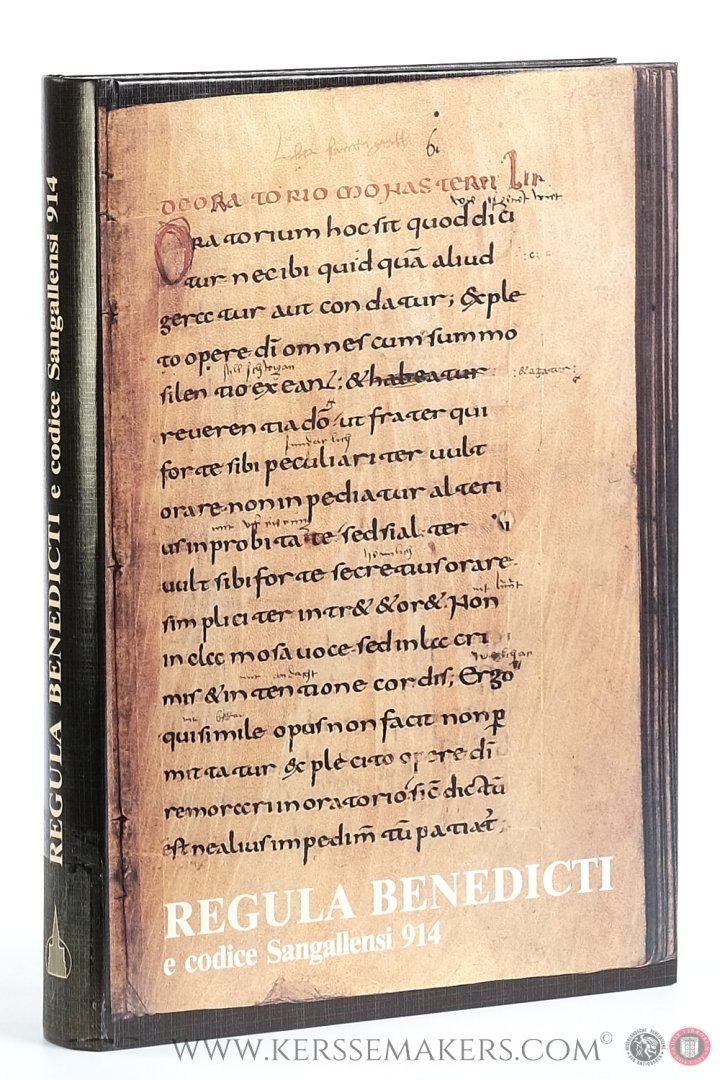 REGULA BENEDICTI e codice Sangallensi 914
6
DE ORATORIO MONASTERII LII
Oratorium hoc sit quod dici
tur nec ibi quid quā aliud
geratur aut condatur; & ple
to opere dī omnes cum summo
silentio exeant; & habeatur
: & agatur :
reverentia dō ut frater qui
forte sibi peculiariter vult
orare non inpediatur alteri
us inprobitate sed si alter
vult sibi forte secretius orare
simpliciter intr& & or& Non
in clamosa voce sed in lacri
mis & intentione cordis; Ergo
qui simile opus non facit non p
mittatur expleto opere dī
remorari in oratorio sic̄ dictū
est ne alius impedim̄tū patiat̄
REGULA BENEDICTI
e codice Sangallensi 914
WWW.KERSSEMAKERS.COM©